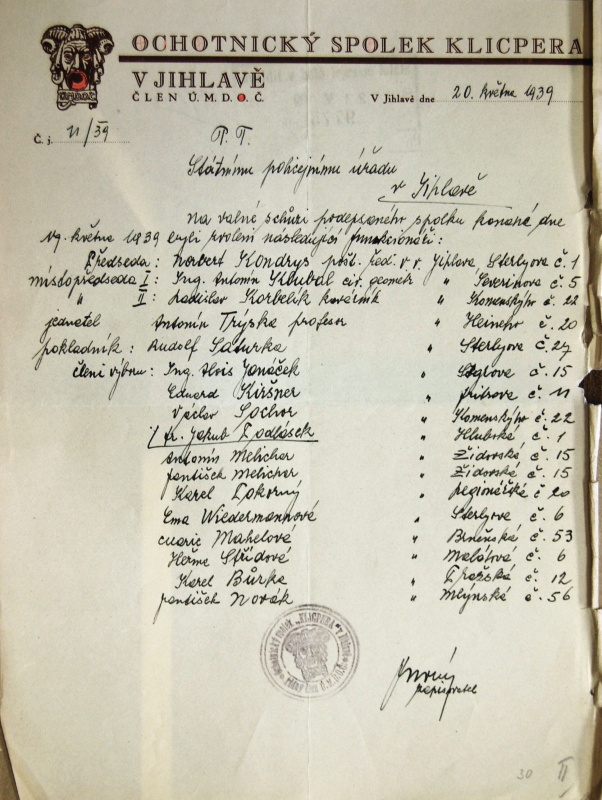 OCHOTNICKÝ SPOLEK KLICPERA
V JIHLAVĚ
ČLEN Ú.M.D.O.Č.
V Jihlavě dne 20. května 1939
Č. j. 11/39
P. T.
Státnímu policejnímu úřadu
v Jihlavě
Na valné schůzi podepsaného spolku konané dne
19. května 1939 byli zvoleni následující funkcionáři:
Předseda: Norbert Kondrys pošt. řed. v. v. Jihlava Sterlyova č. 1
místopředseda I: Ing. Antonín Koubal civ. geometr " Severinova č. 5
" II: Ladislav Korbelík kavárník " Komenského č. 22
jednatel Antonín Trýska profesor " Heineho č. 20
pokladník: Rudolf Saturka " Sterlyova č. 27
členi výboru: Ing. Alois Janáček " č. 15
Eduard Kiršner " Fritrova č. 11
Václav Sochor " Komenského č. 22
fr. Jakub Podlásek " Hluboká č. 1
Antonín Melichar " Židovská č. 15
František Melichar " Židovská č. 15
Karel Pokorný " Legionářská č. 20
Ema Wiedermannová " Sterlyova č. 6
Marie Mahelová " Brněnská č. 53
Heřma Střídová " Malátova č. 6
Karel Bůrka " Pražská č. 12
František Novák " Mlýnská č. 56
"KLICPERA" v Jihlavě
zapisovatel
30 II